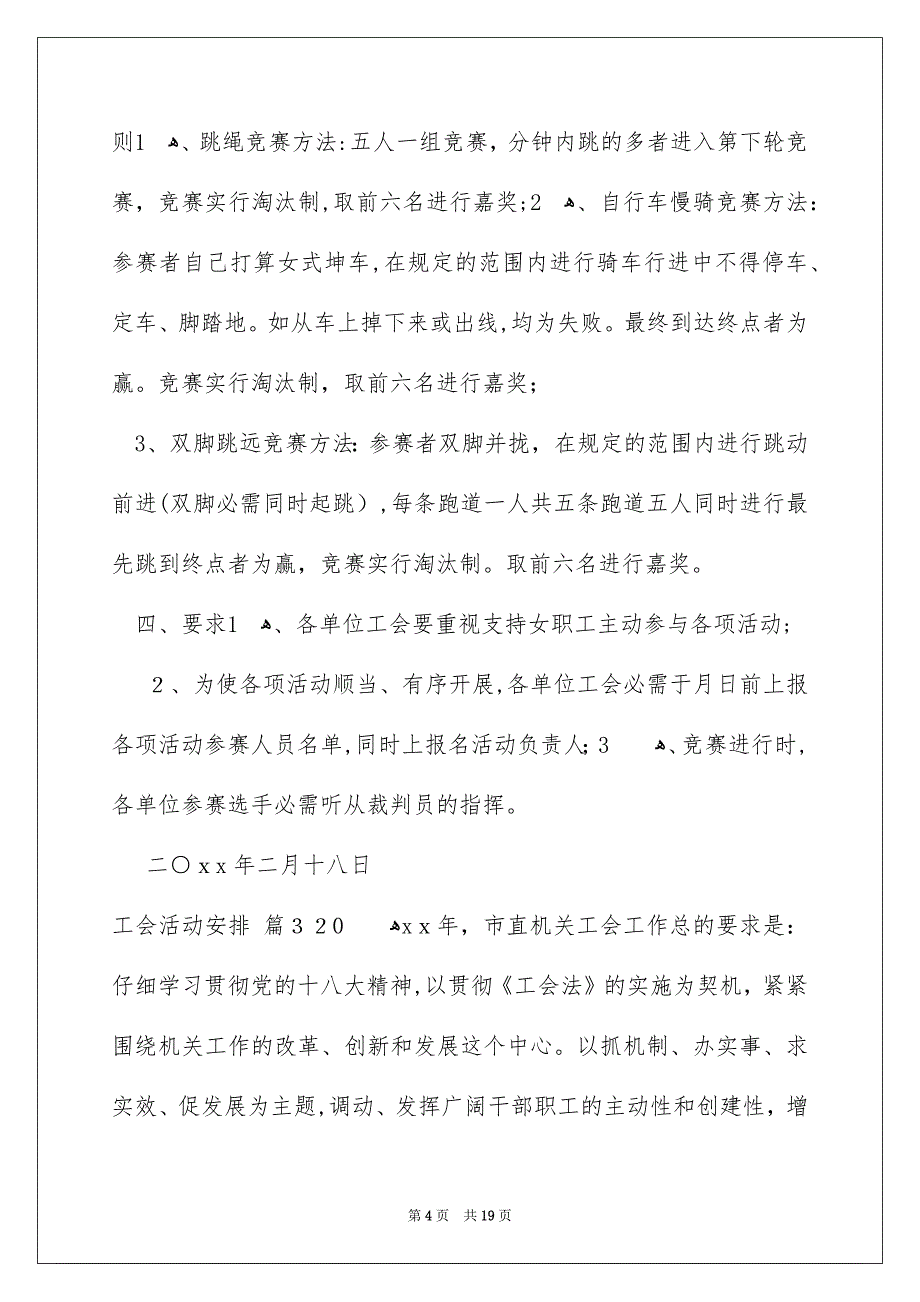 则1 ﻫ、跳绳竞赛方法:五人一组竞赛，分钟内跳的多者进入第下轮竞
赛，竞赛实行淘汰制,取前六名进行嘉奖;2 ﻫ、自行车慢骑竞赛方法：
参赛者自己打算女式坤车,在规定的范围内进行骑车行进中不得停车、
定车、脚踏地。如从车上掉下来或出线,均为失败。最终到达终点者为
赢。竞赛实行淘汰制，取前六名进行嘉奖；
3、双脚跳远竞赛方法：参赛者双脚并找，在规定的范围内进行跳动
前进(双脚必需同时起跳）,每条跑道一人共五条跑道五人同时进行最
先跳到终点者为赢，竞赛实行淘汰制。取前六名进行嘉奖。
四、要求1 ﻫ、各单位工会要重视支持女职工主动参与各项活动;
２、为使各项活动顺当、有序开展,各单位工会必需于月日前上报
各项活动参赛人员名单,同时上报名活动负责人；3 ﻫ、竞赛进行时,
各单位参赛选手必需听从裁判员的指挥。
二〇ｘx 年二月十八日
工会活动安排 篇３ 20 ﻫxｘ年，市直机关工会工作总的要求是：
仔细学习贯彻党的十八大精神,以贯彻《工会法》的实施为契机，紧紧
围绕机关工作的改革、创新和发展这个中心。以抓机制、办实事、求
实效、促发展为主题,调动、发挥广阔干部职工的主动性和创建性，增
第 4 页 共 19 页